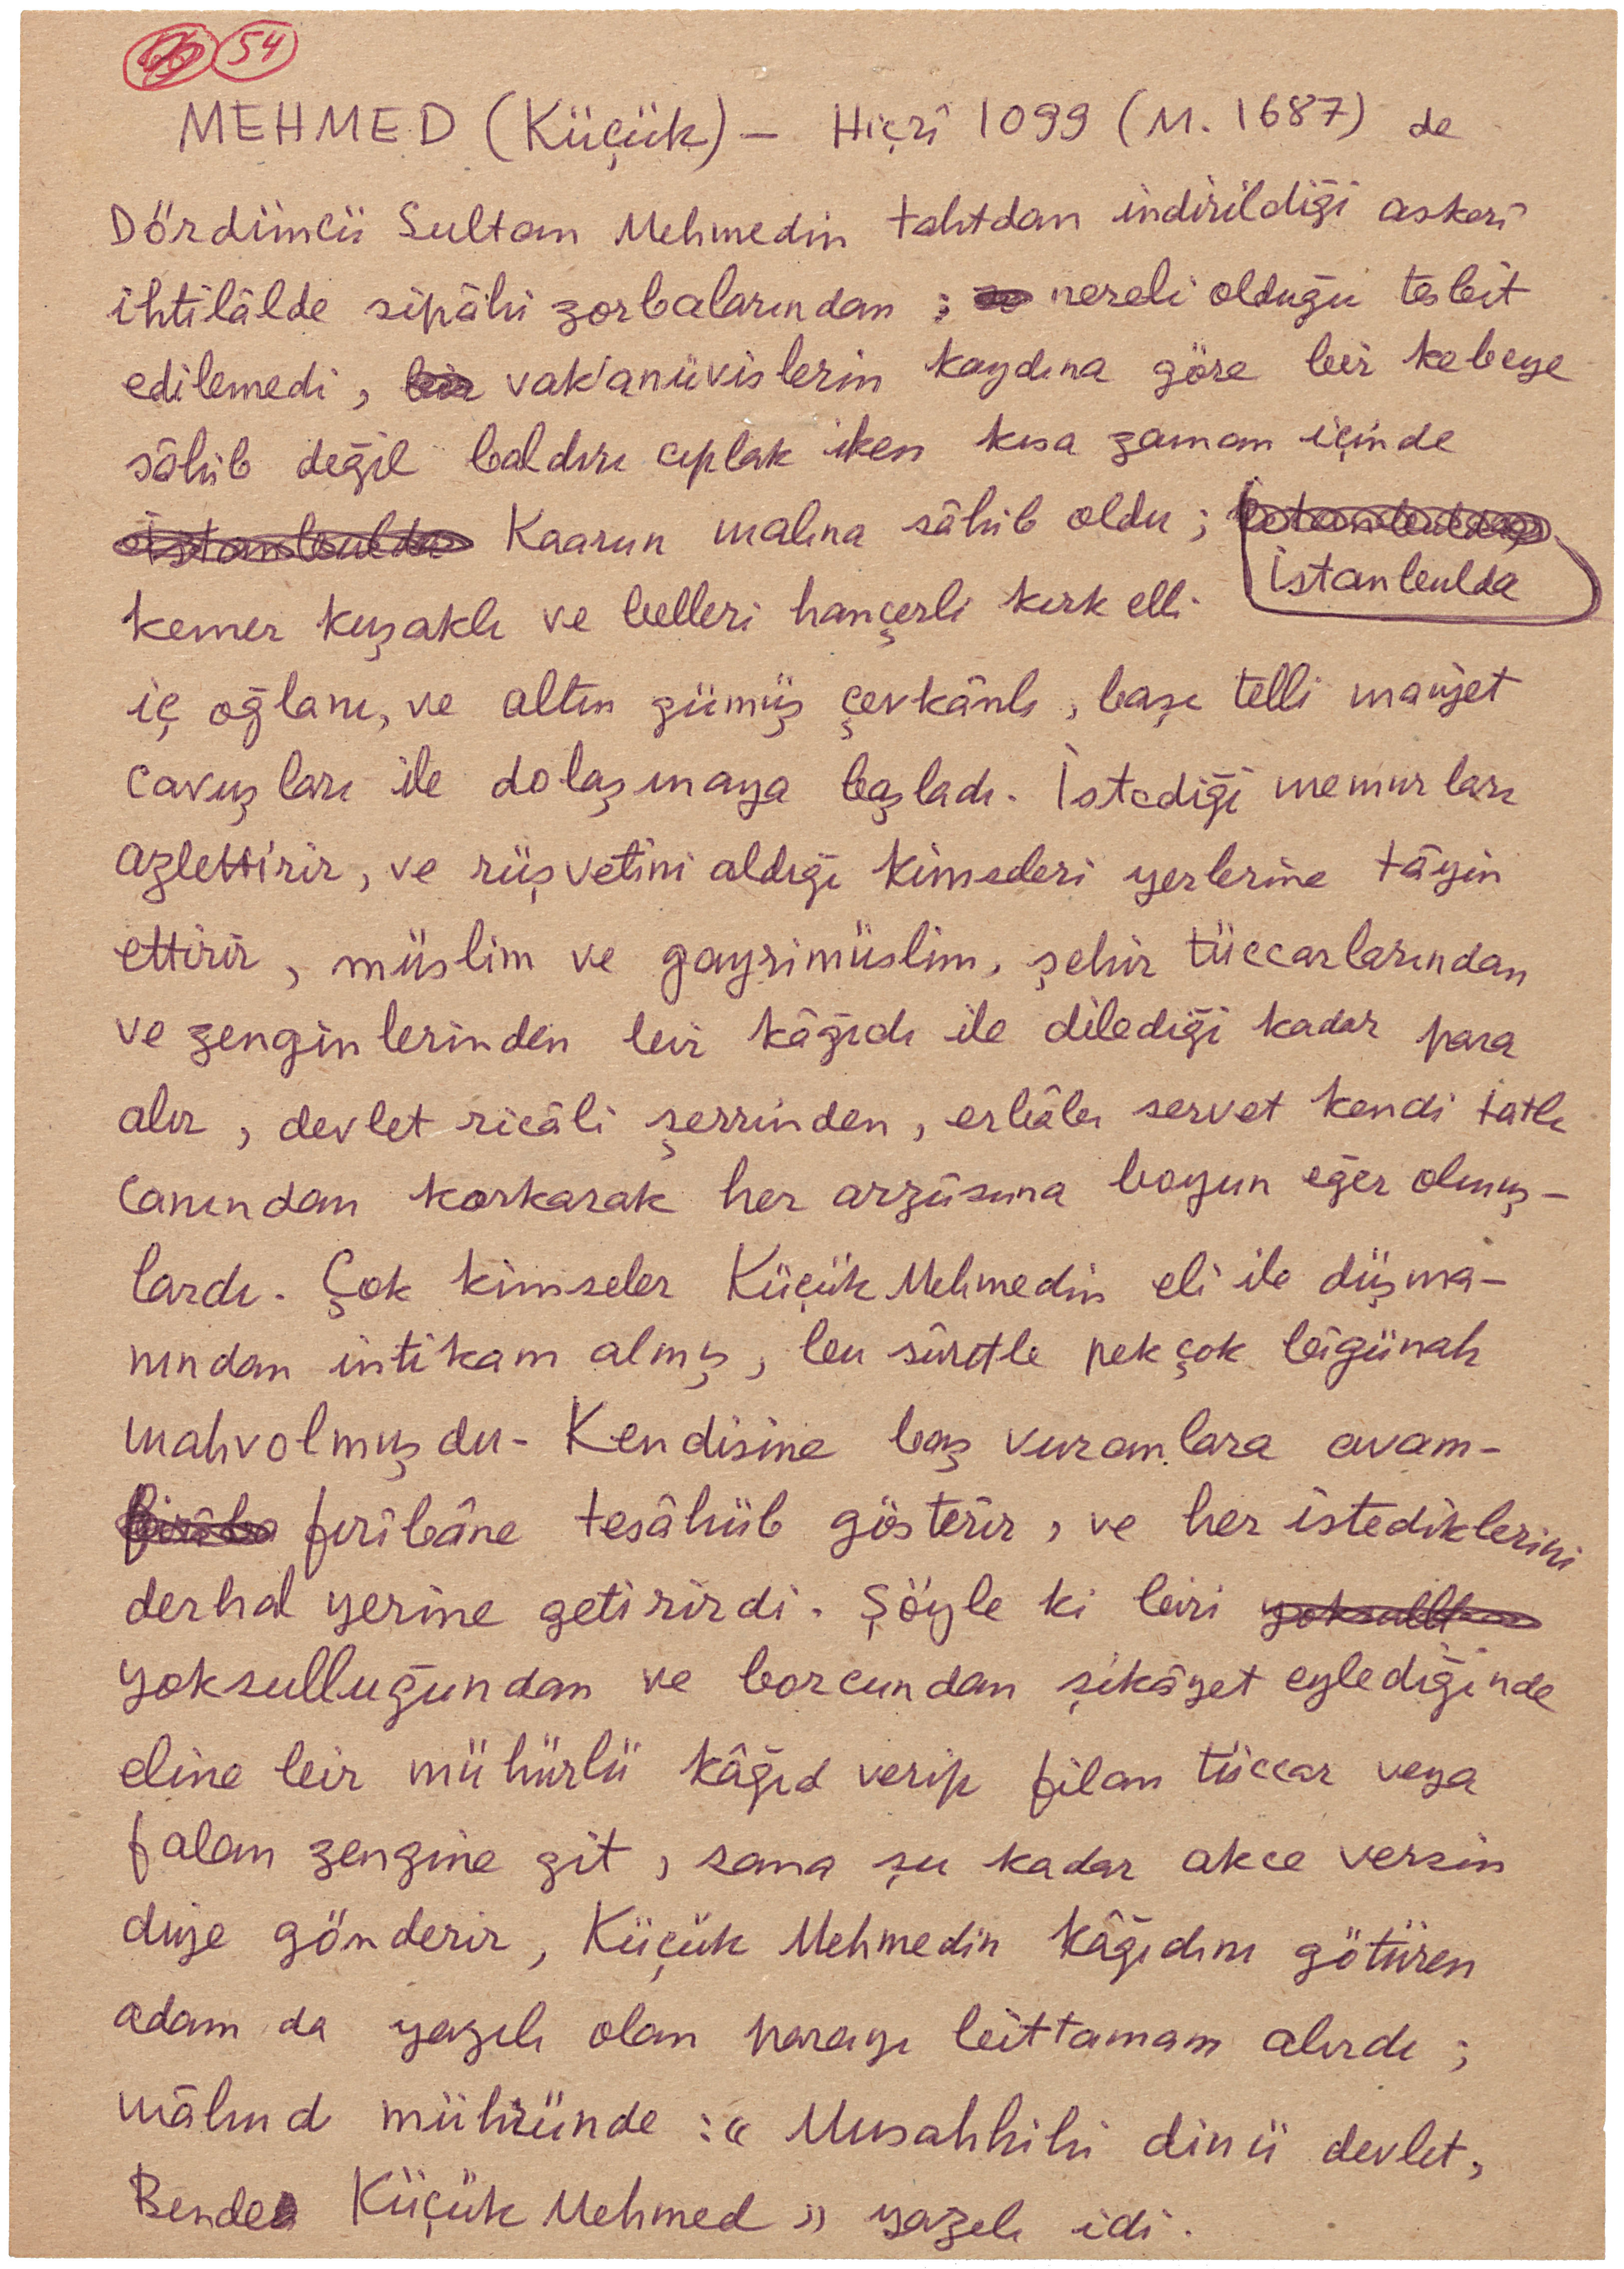 54
MEHMED (Küçük) — Hicrî 1099 (M. 1687) de
Dördüncü Sultan Mehmedin tahtdan indirildiği askerî
ihtilâlde sipâhi zorbalarından ; nereli olduğu tesbit
edilemedi, vak'anüvislerin kaydına göre bir kebeye
sâhib değil baldırı çıplak iken kısa zaman içinde
Kaarun malına sâhib oldu ;
İstanbulda
kemer kuşaklı ve belleri hançerli kırk elli
iç oğlanı, ve altın gümüş çevkânlı, başı telli maiyet
çavuşları ile dolaşmaya başladı. İstediği memurları
azlettirir, ve rüşvetini aldığı kimseleri yerlerine tâyin
ettirir, müslim ve gayrimüslim, şehir tüccarlarından
ve zenginlerinden bir kâğıdı ile dilediği kadar para
alır, devlet ricâli şerrinden, erbâbı servet kendi tatlı
canından korkarak her arzûsuna boyun eğer olmuş-
lardı. Çok kimseler Küçük Mehmedin eli ile düşma-
nından intikam almış, bu sûretle pekçok bîgünah
mahvolmuşdu. Kendisine baş vuranlara avam-
firîbâne tesâhüb gösterir, ve her istediklerini
derhal yerine getirirdi. Şöyle ki biri
yoksulluğundan ve borcundan şikâyet eylediğinde
eline bir mühürlü kâğıd verip filan tüccar veya
falan zengine git, sana şu kadar akce versin
diye gönderir, Küçük Mehmedin kâğıdını götüren
adam da yazılı olan parayı bittamam alırdı ;
mâlûnd mühründe : « Musahhihi dinü devlet,
Bende Küçük Mehmed » yazılı idi.